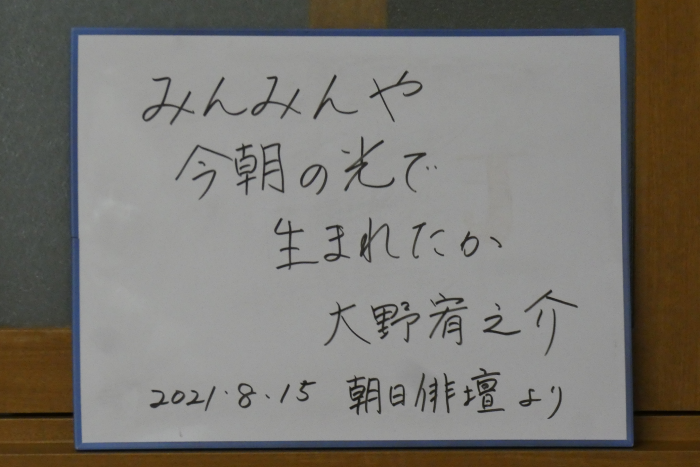 みんみんや
今朝の光で
生まれたか
大野宥之介
2021.8.15 朝日俳壇より